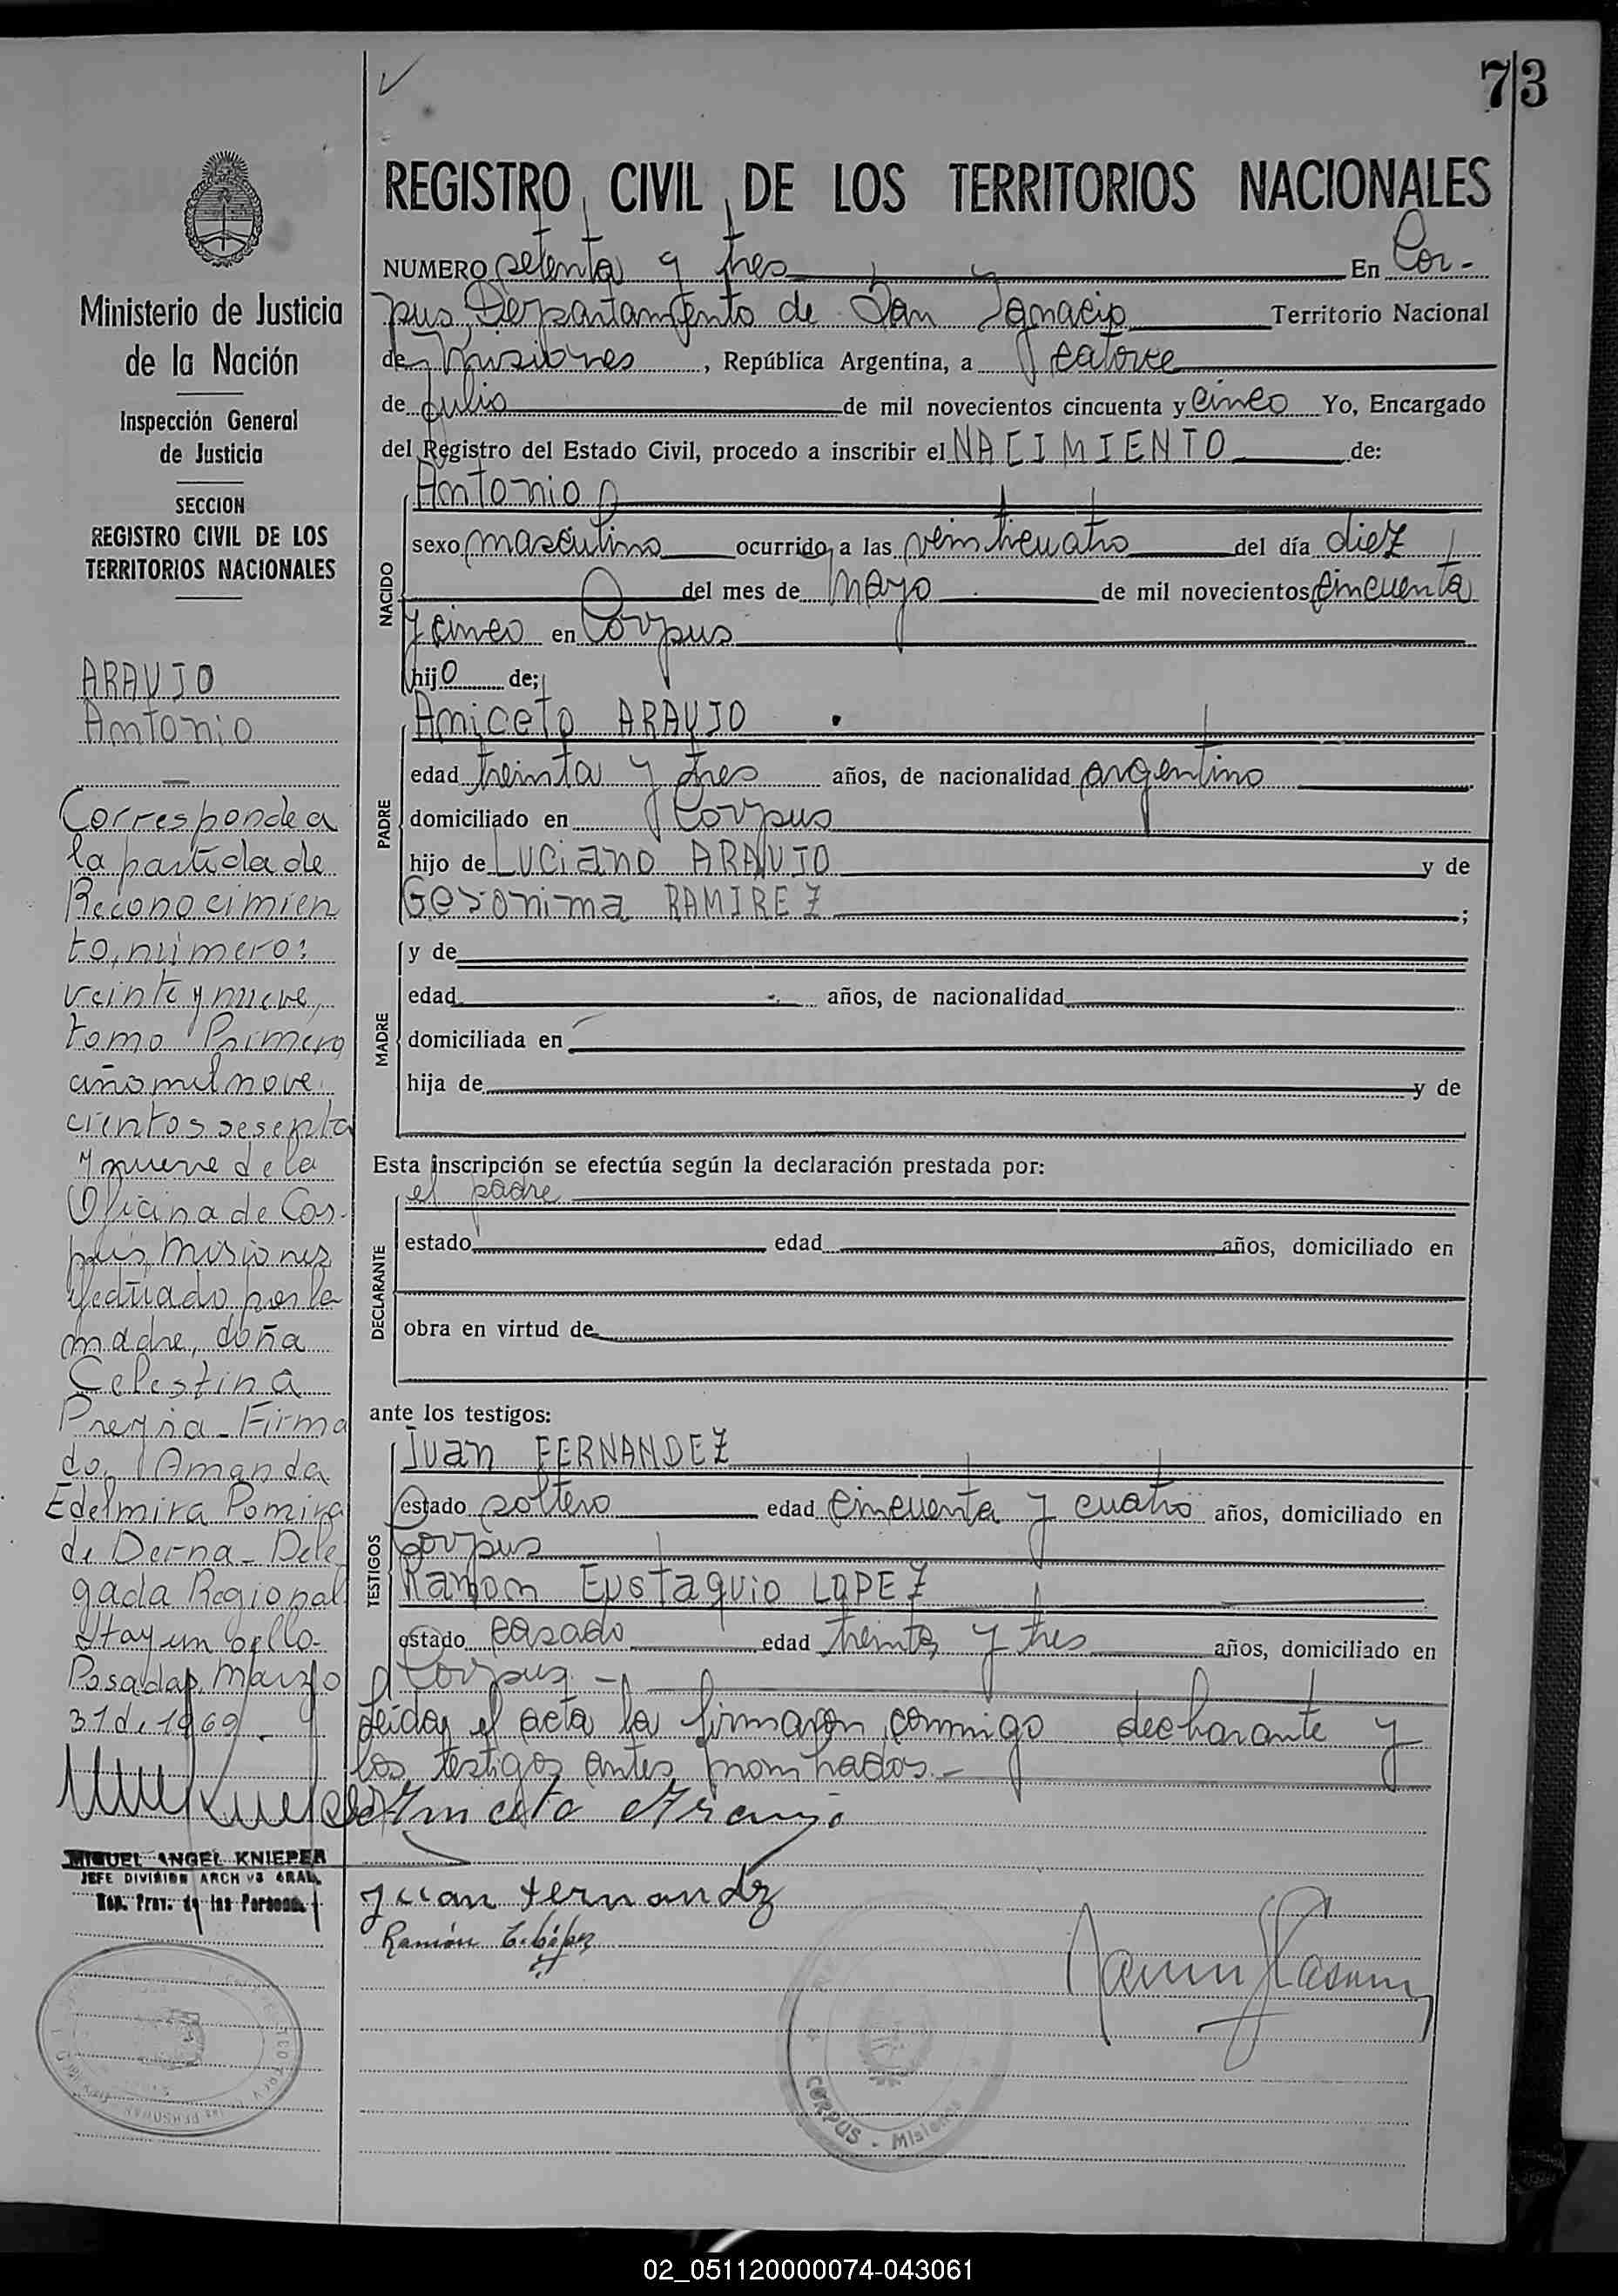 73
REGISTRO CIVIL DE LOS TERRITORIOS NACIONALES
NUMERO setenta y tres En Cor-
pus, Departamento de San Ignacio Territorio Nacional
de Misiones, República Argentina, a catorce
de Julio de mil novecientos cincuenta y cinco Yo, Encargado
del Registro del Estado Civil, procedo a inscribir el NACIMIENTO de:
NACIDO
Antonio
sexo masculino ocurrido a las veinticuatro del día diez
del mes de Mayo de mil novecientos cincuenta
y cinco en Corpus
hijo de;
PADRE
Aniceto ARAUJO
edad treinta y tres años, de nacionalidad argentino
domiciliado en Corpus
hijo de Luciano ARAUJO y de
Geronima RAMIREZ ;
MADRE
y de
edad años, de nacionalidad
domiciliada en
hija de y de
Esta inscripción se efectúa según la declaración prestada por:
DECLARANTE
el padre
estado edad años, domiciliado en
obra en virtud de
ante los testigos:
TESTIGOS
Juan FERNANDEZ
estado soltero edad cincuenta y cuatro años, domiciliado en
Corpus
Ramon Eustaquio LOPEZ
estado casado edad treinta y tres años, domiciliado en
Corpus.-
Leida el acta la firmaron conmigo declarante y
los testigos antes nombrados.-
Aniceto Araujo
Juan Fernandez
Ramón E. López
CORPUS - Misiones
Ministerio de Justicia
de la Nación
Inspección General
de Justicia
SECCION
REGISTRO CIVIL DE LOS
TERRITORIOS NACIONALES
ARAUJO
Antonio
Corresponde a
la partida de
Reconocimien
to, número:
veinte y nueve,
tomo Primero
año mil nove
cientos sesenta
y nueve de la
Oficina de Cor-
pus, Misiones
efectuado por la
madre, doña
Celestina
Firma
do, Amanda
Edelmira
de Derna - Dele
gada Regional
Hay un sello-
Posadas, Marzo
31 de 1969.
MIGUEL ANGEL KNIEPER
JEFE DIVISION ARCHIVO GRAL.
Reg. Prov. de las Personas
02_051120000074-043061